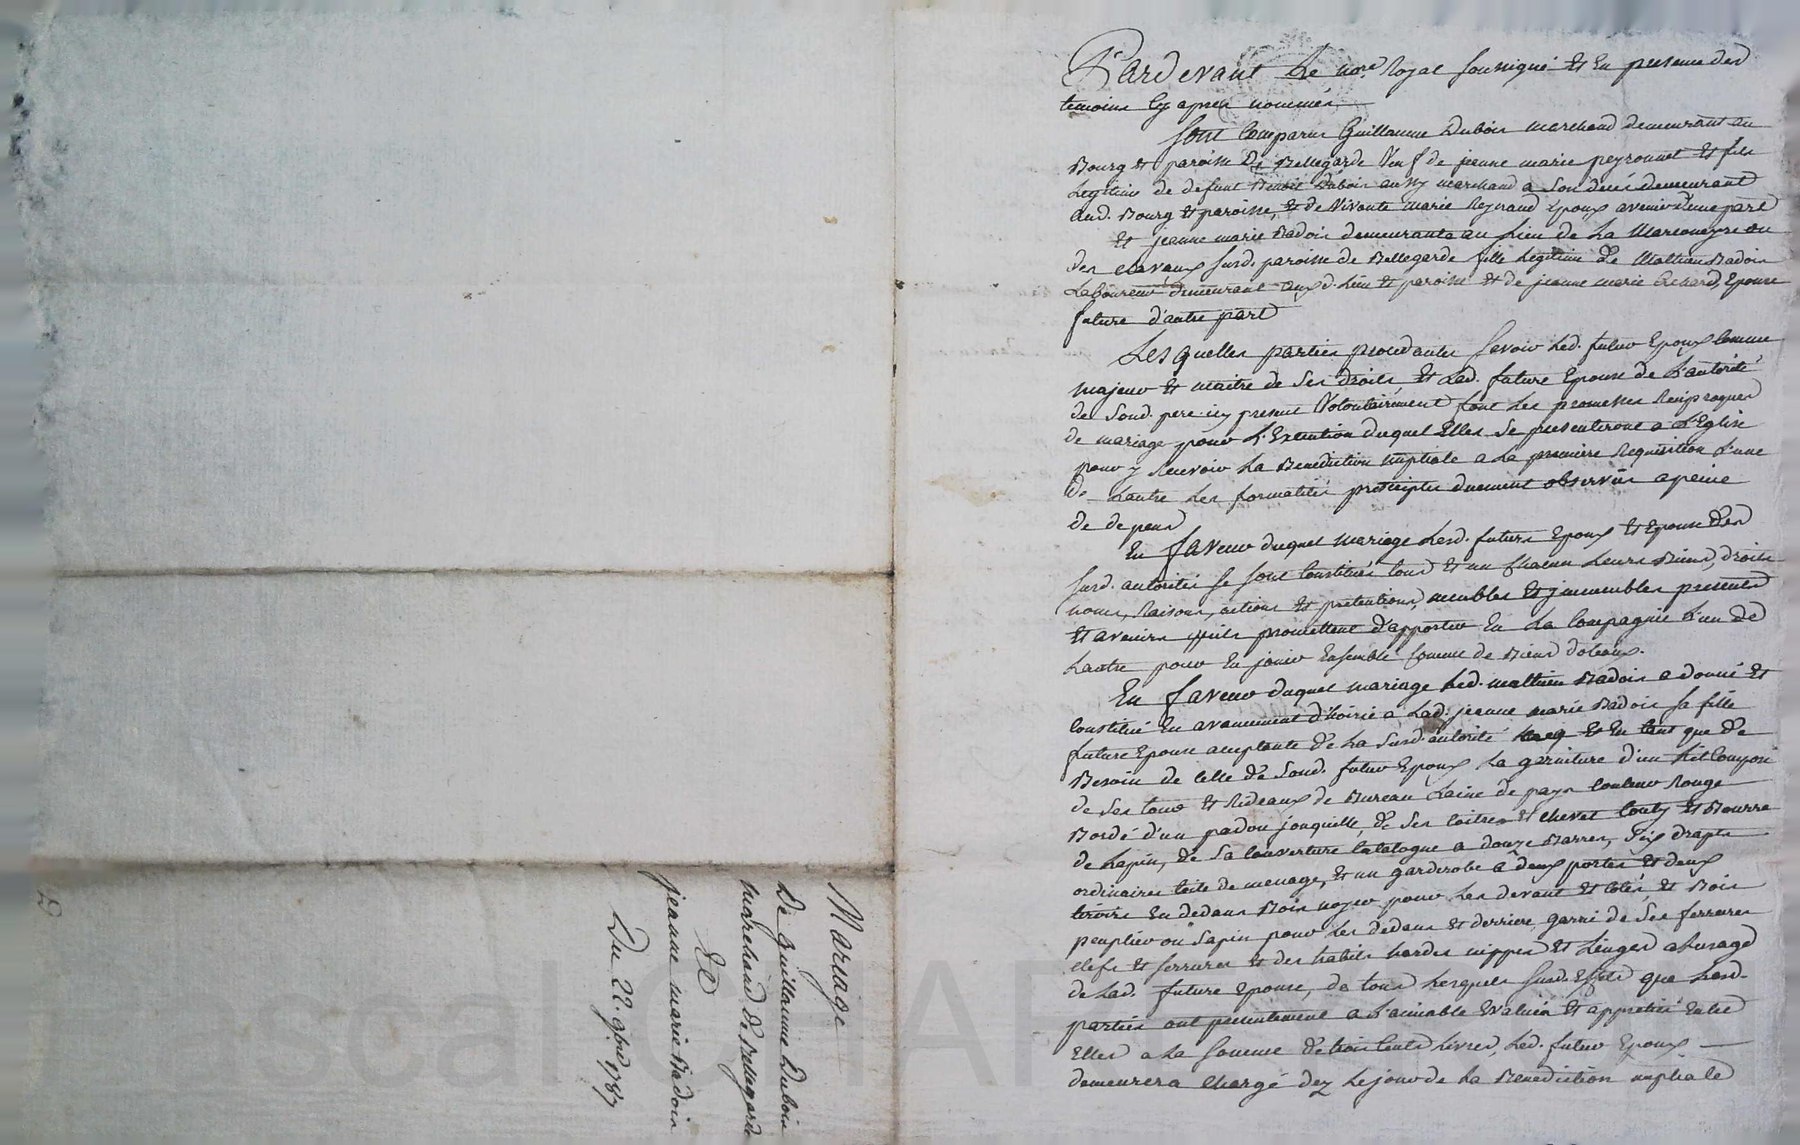 Mariage
De Guillaume Dubois
marchand de Bellegarde
Et
jeanne marie Badoin
Du 22. 9bre 1787
Pardevant Le nore. Royal soussigné et En presence des
temoins cy apres nommés,
Sont Comparus Guillaume Dubois marchand demeurant au
Bourg et paroisse de Bellegarde Veuf de jeanne marie peyronnet et fils
Legitime de defunt Benoit Dubois aussy marchand a son deces demeurant
aud. Bourg et paroisse, et de Vivante marie Reynaud Epoux avenir d'une part
Et jeanne marie Badoin demeurante au Lieu de La
des susd. paroisse de Bellegarde fille Legitime de Mathieu Badoin
Laboureur demeurant aux d. Lieu et paroisse et de jeanne marie Epouse
future d'autre part
Les quelles parties procedantes sçavoir Led. futur Epoux comme
majeur et maitre de ses droits et Lad. future Epouse de L'autorité
de Sond. pere icy present Volontairement font Les promesses Reciproques
de mariage pour L'Execution duquel Elles se presenteront a L'Eglise
pour y Recevoir La Benediction nuptiale a La premiere Requisition L'une
de Lautre Les formalités prescriptes duement observées a peine
de depens
En faveur duquel mariage Lesd. futurs Epoux et Epouse des
susd. autorités se sont Constitués tous et un chacun Leurs Biens, droits
noms, Raisons, actions et pretentions, meubles et jmmeubles presents
et avenirs quils promettent d'apporter En La Compagnie L'un de
Lautre pour En jouir Ensemble comme de Biens dotaux.
En faveur duquel mariage Led. mathieu Badoin a donné et
Constitué En avancement d'hoirie a Lad. jeanne marie Badoin sa fille
future Epouse acceptante de La Susd. autorité et En tant que de
Besoin de celle de Sond. futur Epoux La garniture d'un Lit Composé
de ses tours et Rideaux de Bureau Laine de pays Couleur Rouge
Bordé d'un padou jonquille, de ses et chevet Couty et Bourre
de Lapin, de Sa Couverture Catalogne a douze Barres, Six draps
ordinaires toile de menage, et un garderobe a deux portes et deux
tiroirs En dedans Bois noyer pour Les devant et Cotés, et Bois
peuplier ou Sapin pour Les dedans et derriere garni de Ses ferrures
clefs et serrures et des habits hardes nippes et Linges a L'usage
de Lad. future Epouse, de tous Lesquels susd. Effets que Lesd.
parties ont presentement a L'aimable Evalués et appretiés Entre
Elles a La Somme de trois Cents Livres, Led. futur Epoux
demeurera Chargé dez Le jour de La Benediction nuptiale